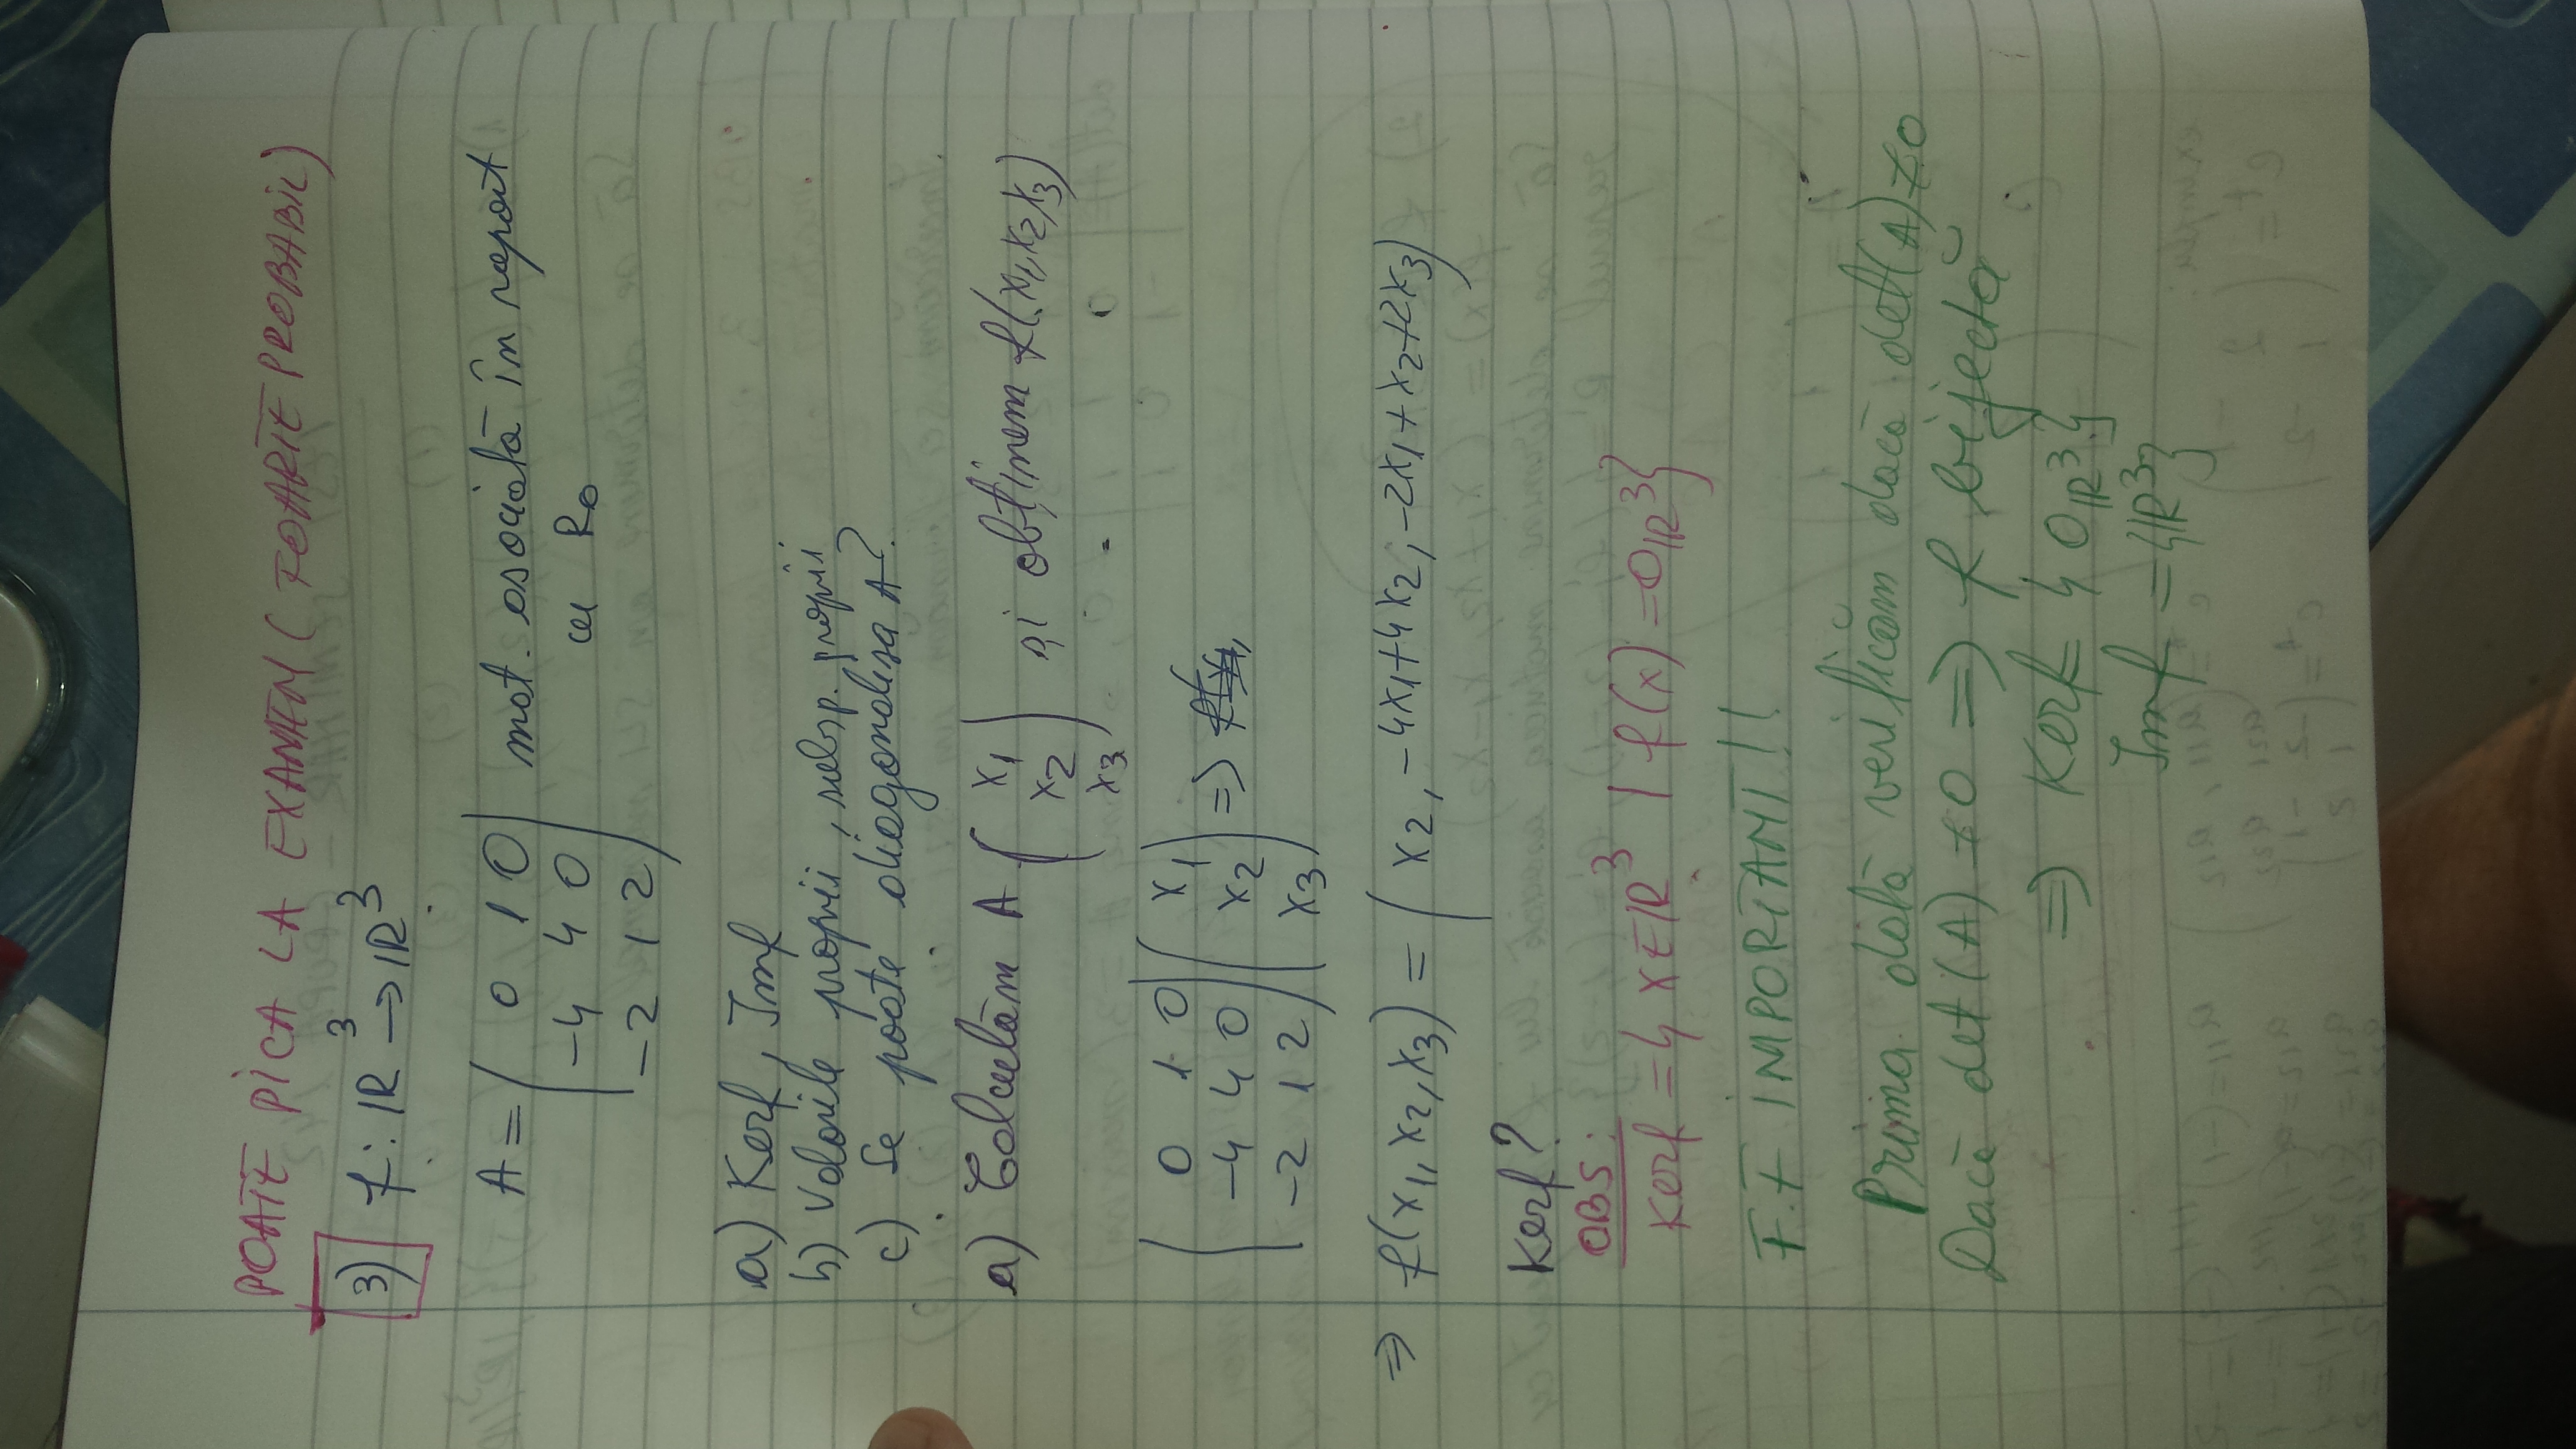 POATE PICA LA EXAMEN ( FOARTE PROBABIL)
3) f: ℝ³ → ℝ³
A = ( 0 1 0 ) mat. asociată în raport
-4 4 0 cu R₀
-2 1 2
a) Kerf, Imf
b) Valorile proprii, subsp. proprii
c) Se poate diagonaliza A?
a) Calculăm A · ( x₁ x₂ x₃ ) și obținem f(x₁,x₂,x₃)
( 0 1 0 ) ( x₁ ) =>
-4 4 0 x₂
-2 1 2 x₃
=> f(x₁, x₂, x₃) = ( x₂, -4x₁+4x₂, -2x₁+x₂+2x₃)
Kerf?
OBS:
Kerf = { x∈ℝ³ | f(x) = 0ℝ³}
F.F IMPORTANT!!
Prima dată verificăm dacă det(A)≠0
Dacă det(A) ≠0 => f bijectă
=> Kerf= {0ℝ³}
Imf = {ℝ³}